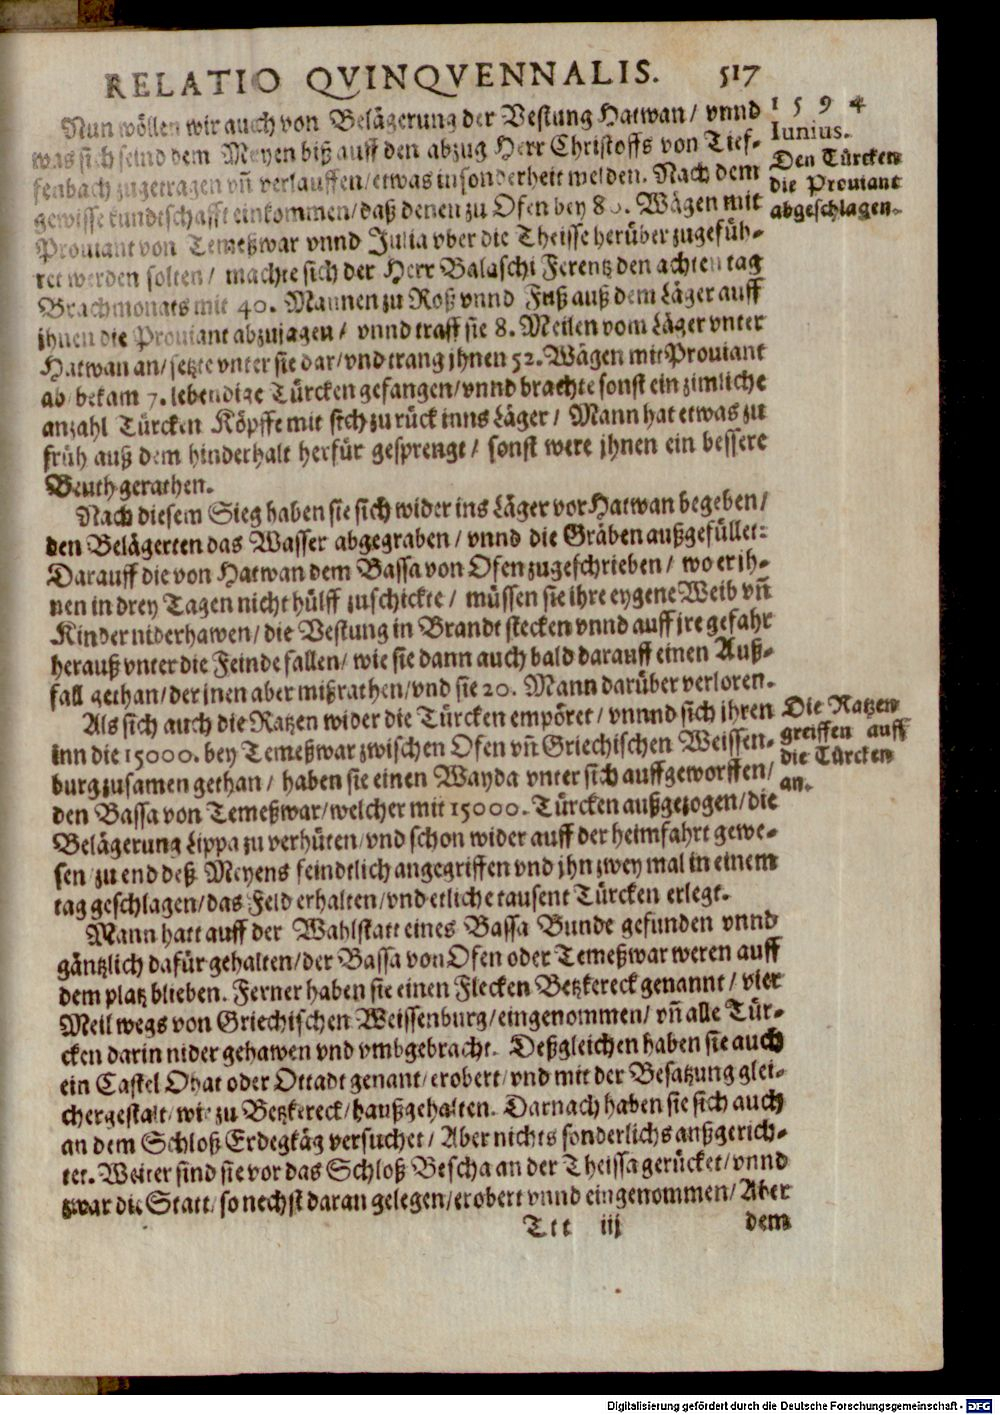 RELATIO QVINQVENNALIS. 517
Nun wöllen wir auch von Belägerung der Vestung Hatwan/ vnnd
was sich seind dem Meyen biß auff den abzug Herr Christoffs von Tief-
fenbach zugetragen vñ verlauffen/ etwas insonderheit melden. Nach dem
gewisse kundtschafft einkommen/ daß denen zu Ofen bey 80. Wägen mit
Prouiant von Temeßwar vnnd Julia vber die Theisse herüber zugefüh-
ret werden solten/ machte sich der Herr Balaschi Ferentz den achten tag
Brachmonats mit 40. Mannen zu Roß vnnd Fuß auß dem Läger auff
jhnen die Prouiant abzujagen/ vnnd traff sie 8. Meilen vom Läger vnter
Hatwan an/ setzte vnter sie dar/ vnd trang jhnen 52. Wägen mit Prouiant
ab/ bekam 7. lebendige Türcken gefangen/ vnnd brachte sonst ein zimliche
anzahl Türcken Köpffe mit sich zu rück inns Läger/ Mann hat etwas zu
früh auß dem hinderhalt herfür gesprengt/ sonst were jhnen ein bessere
Beuth gerathen.
1 5 9 4
Iunius.
Den Türcken
die Prouiant
abgeschlagen.
Nach diesem Sieg haben sie sich wider ins Läger vor Hatwan begeben/
den Belägerten das Wasser abgegraben/ vnnd die Gräben außgefüllet:
Darauff die von Hatwan dem Bassa von Ofen zugeschrieben/ wo er ih-
nen in drey Tagen nicht hülff zuschickte/ müssen sie ihre eygene Weib vñ
Kinder niderhawen/ die Vestung in Brandt stecken vnnd auff jre gefahr
herauß vnter die Feinde fallen/ wie sie dann auch bald darauff einen Auß-
fall gethan/ der inen aber mißrathen/ vnd sie 20. Mann darüber verloren.
Als sich auch die Ratzen wider die Türcken empöret/ vnnnd sich ihren
inn die 15000. bey Temeßwar zwischen Ofen vñ Griechischen Weissen-
burg zusamen gethan/ haben sie einen Wayda vnter sich auffgeworffen/
den Bassa von Temeßwar/ welcher mit 15000. Türcken außgezogen/ die
Belägerung Lippa zu verhüten/ vnd schon wider auff der heimfahrt gewe-
sen/ zu end deß Meyens feindtlich angegriffen vnd jhn zwey mal in einem
tag geschlagen/ das Feld erhalten/ vnd etliche tausent Türcken erlegt.
Die Ratzen
greiffen auff
die Türcken
an.
Mann hatt auff der Wahlstatt eines Bassa Bunde gefunden vnnd
gäntzlich dafür gehalten/ der Bassa von Ofen oder Temeßwar weren auff
dem platz blieben. Ferner haben sie einen Flecken Betzkereck genannt/ vier
Meil wegs von Griechischen Weissenburg/ eingenommen/ vñ alle Tür-
cken darin nider gehawen vnd vmbgebracht. Deßgleichen haben sie auch
ein Castel Ohat oder Ottadt genant/ erobert/ vnd mit der Besatzung glei-
chergestalt/ wie zu Betzkereck/ haußgehalten. Darnach haben sie sich auch
an dem Schloß Erdegkäg versuchet/ Aber nichts sonderlichs außgerich-
tet. Weiter sind sie vor das Schloß Bescha an der Theissa gerücket/ vnnd
zwar die Statt/ so nechst daran gelegen/ erobert vnnd eingenommen/ Aber
Ttt iij dem
Digitalisierung gefördert durch die Deutsche Forschungsgemeinschaft - DFG